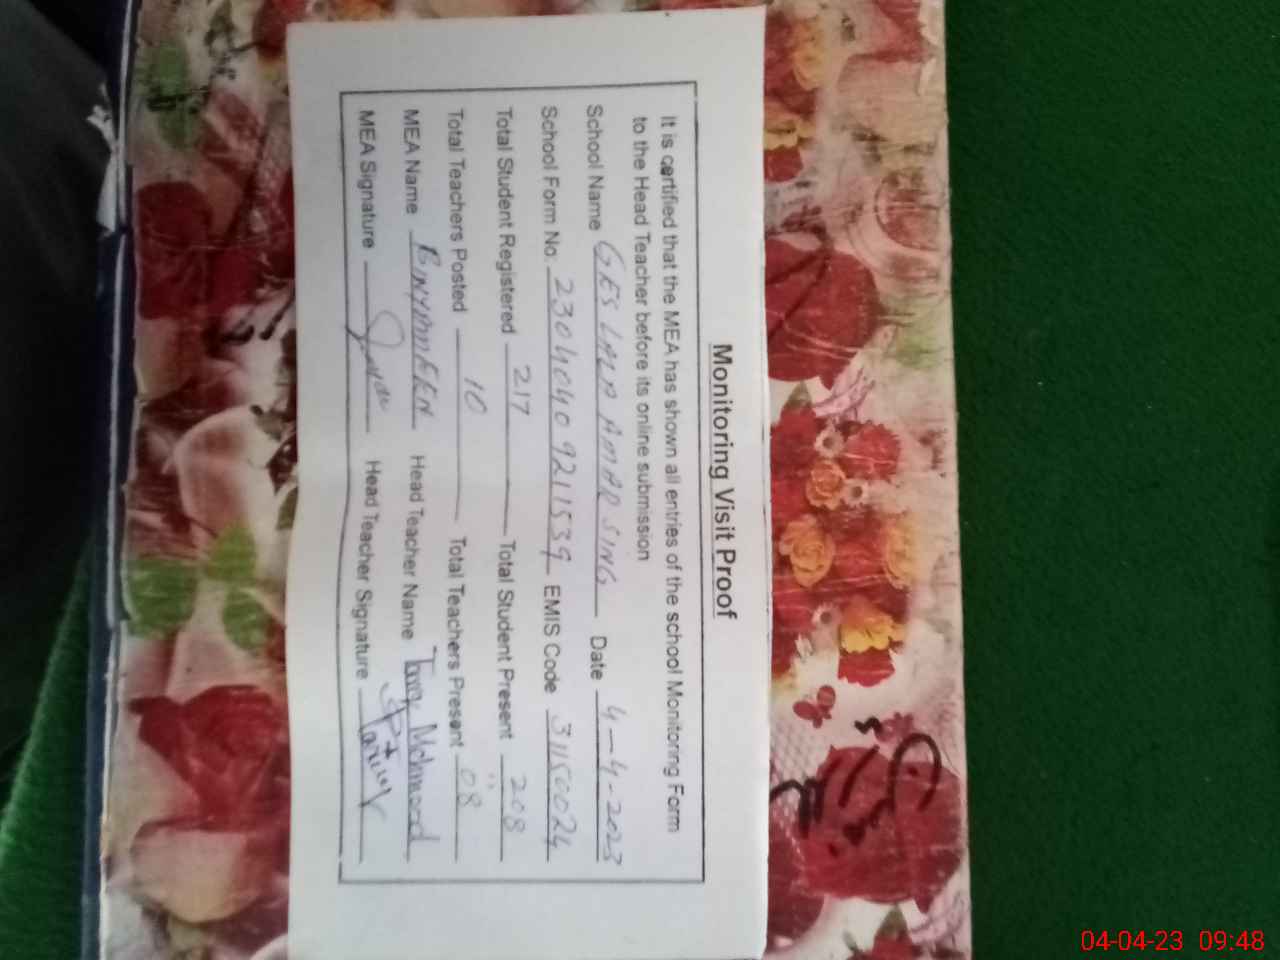 Monitoring Visit Proof
It is certified that the MEA has shown all entries of the school Monitoring Form
to the Head Teacher before its online submission
School Name GES LALA AMAR SING Date 4-4-2023
School Form No: 23040409211539 EMIS Code 31150024
Total Student Registered 217 Total Student Present 208
Total Teachers Posted 10 Total Teachers Present 08
MEA Name BINYAMEEN Head Teacher Name Tariq Mehmood
MEA Signature Head Teacher Signature
04-04-23 09:48